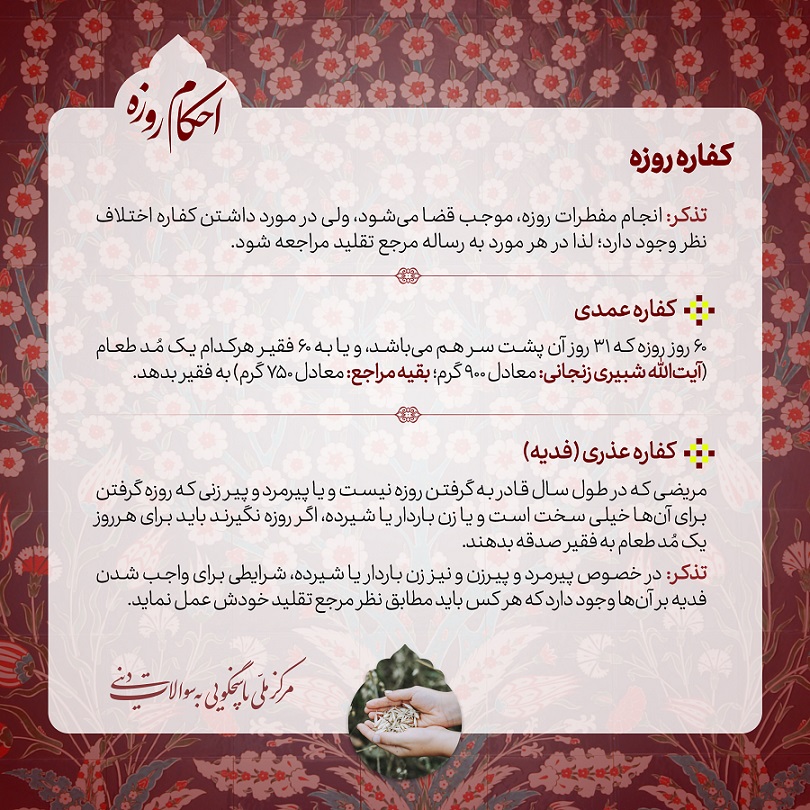 احکام روزه
کفاره روزه
تذکر: انجام مفطرات روزه، موجب قضا می‌شود، ولی در مورد داشتن کفاره اختلاف
نظر وجود دارد؛ لذا در هر مورد به رساله مرجع تقلید مراجعه شود.
کفاره عمدی
۶۰ روز روزه که ۳۱ روز آن پشت سر هم می‌باشد، و یا به ۶۰ فقیر هرکدام یک مُد طعام
(آیت‌الله شبیری زنجانی: معادل ۹۰۰ گرم؛ بقیه مراجع: معادل ۷۵۰ گرم) به فقیر بدهد.
کفاره عذری (فدیه)
مریضی که در طول سال قادر به گرفتن روزه نیست و یا پیرمرد و پیر زنی که روزه گرفتن
برای آن‌ها خیلی سخت است و یا زن باردار یا شیرده، اگر روزه نگیرند باید برای هرروز
یک مُد طعام به فقیر صدقه بدهند.
تذکر: در خصوص پیرمرد و پیرزن و نیز زن باردار یا شیرده، شرایطی برای واجب شدن
فدیه بر آن‌ها وجود دارد که هر کس باید مطابق نظر مرجع تقلید خودش عمل نماید.
مرکز ملّی پاسخگویی به سوالات دینی